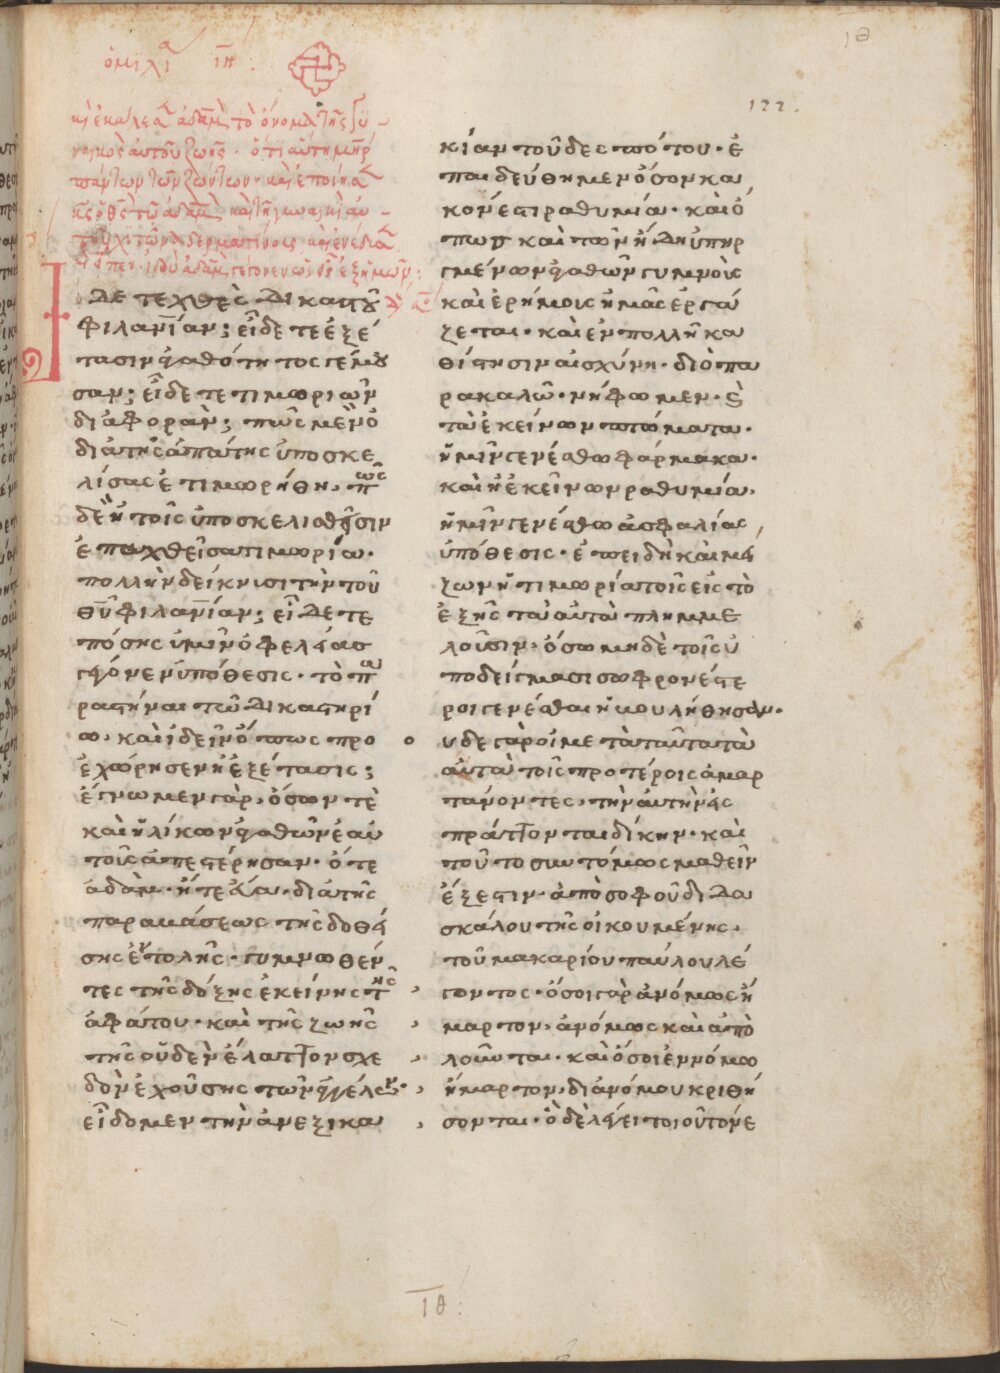 ιθ
ὁμιλία ιη :
122.
καὶ ἐκάλεσεν ἀδὰμ τὸ ὄνομα τῆς γυ
ναικὸς αὐτοῦ ζωὴ· ὅτι αὕτη μήτηρ
πάντων τῶν ζώντων· καὶ ἐποίησεν
κς ὁ θς τῷ ἀδὰμ καὶ τῇ γυναικὶ αὐ
τοῦ χιτῶνας δερματίνους καὶ ἐνέδυσεν
εἶπεν ἰδοὺ ἀδὰμ γέγονεν ὡς εἷς ἐξ ἡμῶν :
Ιδετε χθὲς δικαστοῦ
φιλανίαν; εἴδετε ἐξέ
τασιν ἀγαθότητος γέμου
σαν; εἴδετε τιμωριῶν
διαφοράν; πῶς μὲν ὁ
διὰ τῆς ἀπάτης ὑποσκε
λίσας ἐτιμωρήθη, πῶς
δὲ ἡ τοῖς ὑποσκελισθεῖσιν
ἐπαχθεῖσα τιμωρία·
πολλὴν δείκνυσι τὴν τοῦ
θυ φιλανίαν; εἴδετε
πόσης ὑμῖν ὠφελείας
γέγονεν ὑπόθεσις· τὸ πα
ραστῆναι τῷ δικαστηρί
ω, καὶ ἰδεῖν ὅπως προ
εχώρησεν ἡ ἐξέτασις;
ἔγνωμεν γὰρ, ὅσων τὲ
καὶ ἡλίκων ἀγαθῶν ἑαυ
τοὺς ἀπεστέρησαν· ὅ τε
ἀδὰμ· ἥ τε εὔα· διὰ τῆς
παραβάσεως τῆς δοθεί
σης ἐντολῆς· γυμνωθέν
τες τῆς δόξης ἐκείνης τῆς
ἀφάτου· καὶ τῆς ζωῆς
τῆς οὐδὲν ἔλαττον σχε
δὸν ἐχούσης τῶν ἀγγέλων·
εἴδομεν τὴν ἀνεξικα
κίαν τοῦ δεσπότου· ἐ
παιδεύθημεν ὅσον κα
κόν ἐστι ῥαθυμία· καὶ ὅ
πως καὶ τῶν ἤδη ὑπηρ
γμένων ἀγαθῶν γυμνοὺς
καὶ ἐρήμους ἡμᾶς ἐργά
ζεται· καὶ ἐν πολλῇ κα
θίστησιν αἰσχύνη· διὸ πα
ρακαλῶ· νήφωμεν· καὶ
τὰ ἐκείνων πτώματα·
ἡμῖν γενέσθω φάρμακα·
καὶ ἡ ἐκείνων ῥαθυμία,
ἡμῖν γενέσθω ἀσφαλίας
ὑπόθεσις· ἐπειδὴ καὶ μεί
ζων ἡ τιμωρία τοῖς εἰς τὸ
ἑξῆς τὰ αὐτὰ πλημμε
λοῦσιν, ὅσω μηδὲ τοῖς ὑ
ποδείγμασι σωφρονέστε
ροι γενέσθαι ἠβουλήθησαν·
ουδε γὰρ οἱ μετὰ ταῦτα τὰ
αὐτὰ τοῖς προτέροις ἁμαρ
τάνοντες, τὴν αὐτὴν εἰς
πράττονται δίκην· καὶ
τοῦτο συντόμως μαθεῖν
ἔξεστιν· ἀπὸ σοφοῦ διδα
σκάλου τῆς οἰκουμένης,
τοῦ μακαρίου παύλου λέ
γοντος· ὅσοι γὰρ ἀνόμως ἥ
μαρτον, ἀνόμως καὶ ἀπο
λοῦνται· καὶ ὅσοι ἐν νόμω
ἥμαρτον, διὰ νόμου κριθή
σονται· ὃ δὲ λέγει τοιοῦτόν ἐ
ιθ :